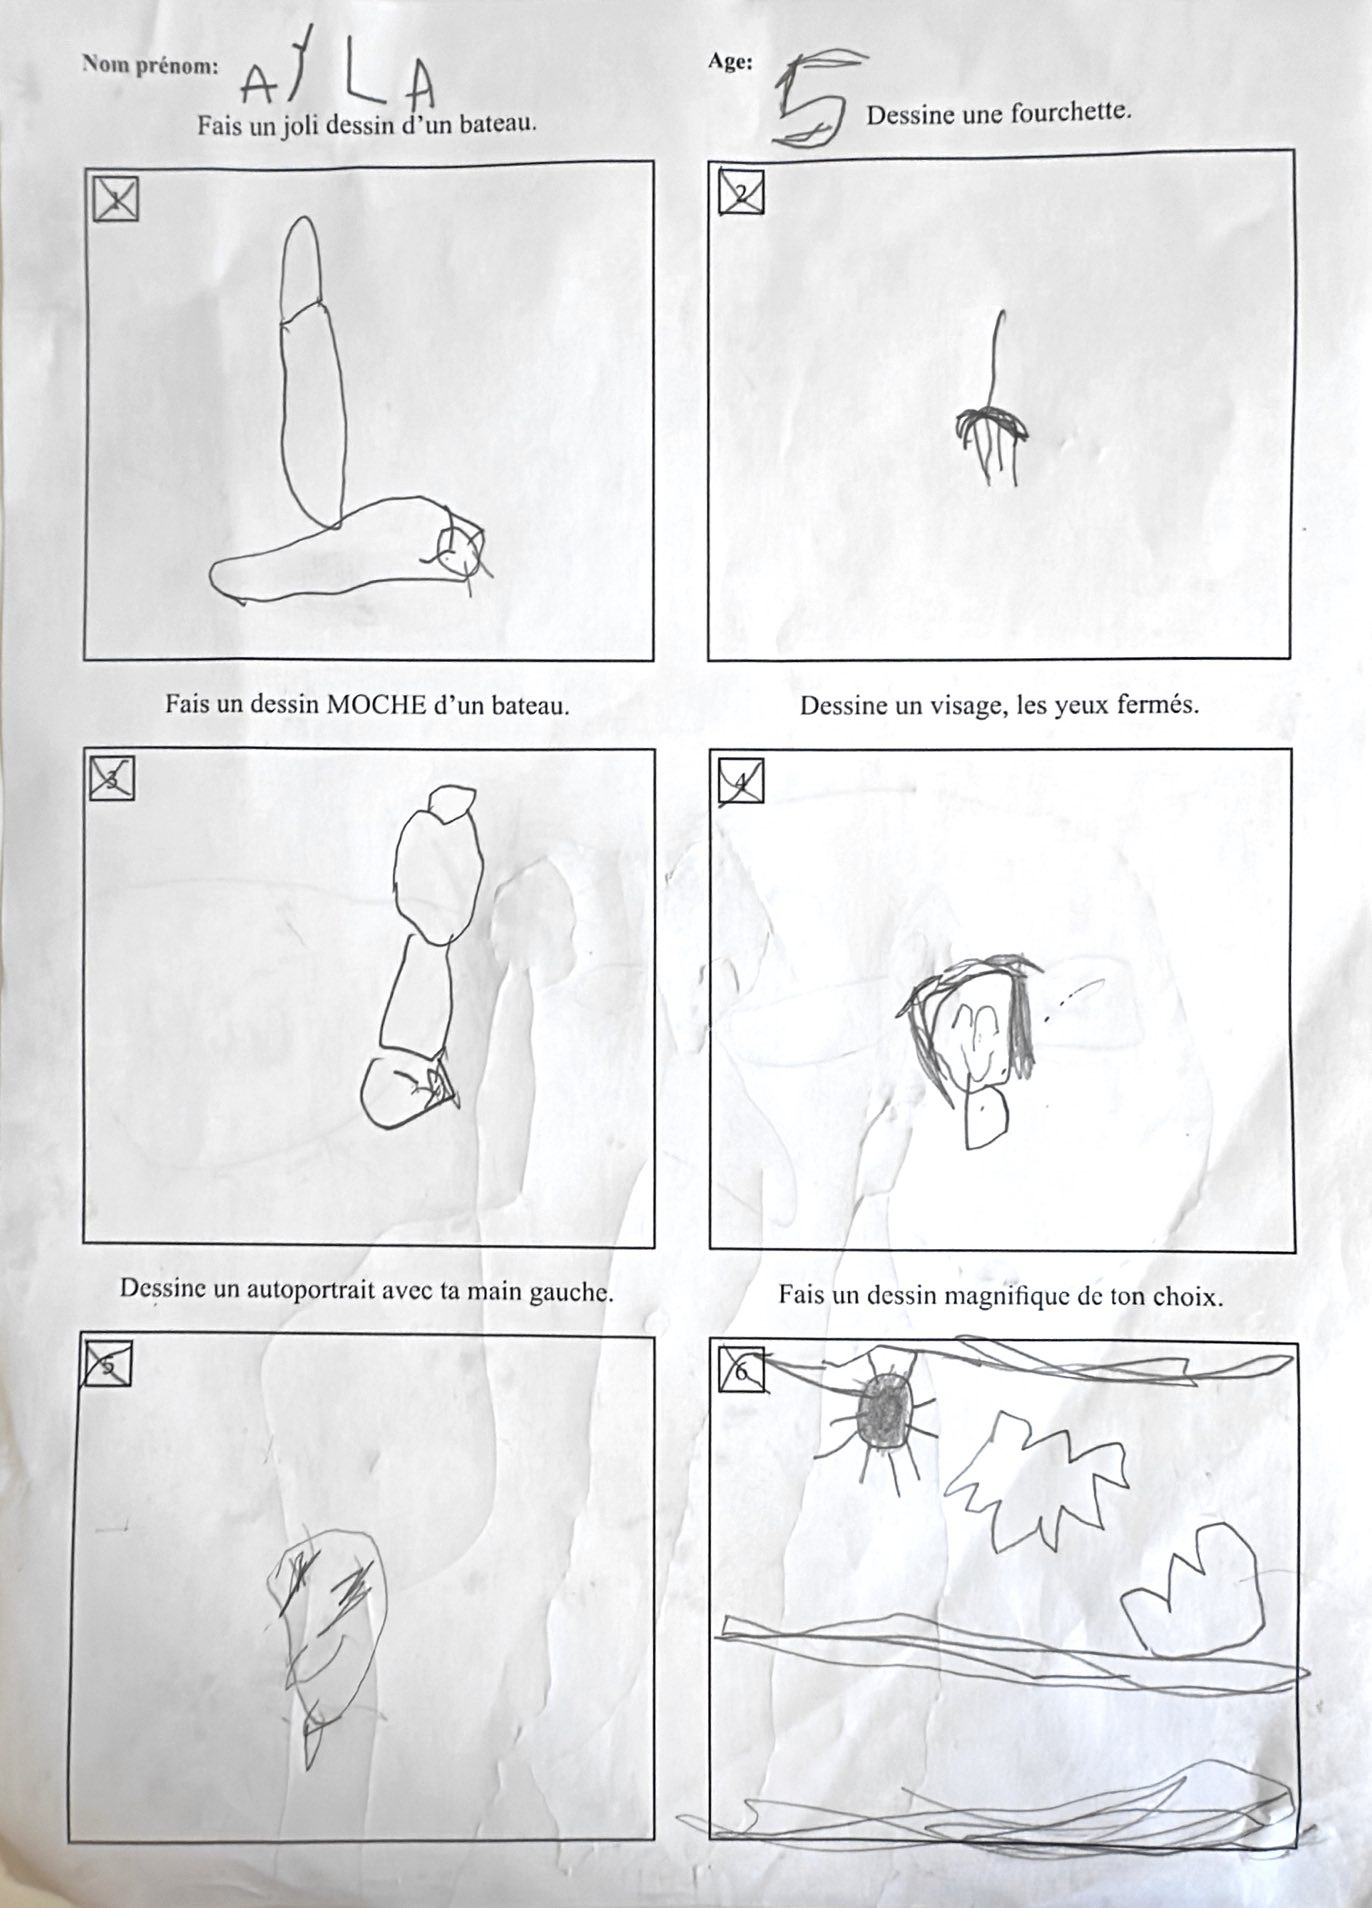 Nom prénom: AYLA
Age: 5
Fais un joli dessin d'un bateau.
Dessine une fourchette.
1
2
Fais un dessin MOCHE d'un bateau.
Dessine un visage, les yeux fermés.
3
4
Dessine un autoportrait avec ta main gauche.
Fais un dessin magnifique de ton choix.
5
6